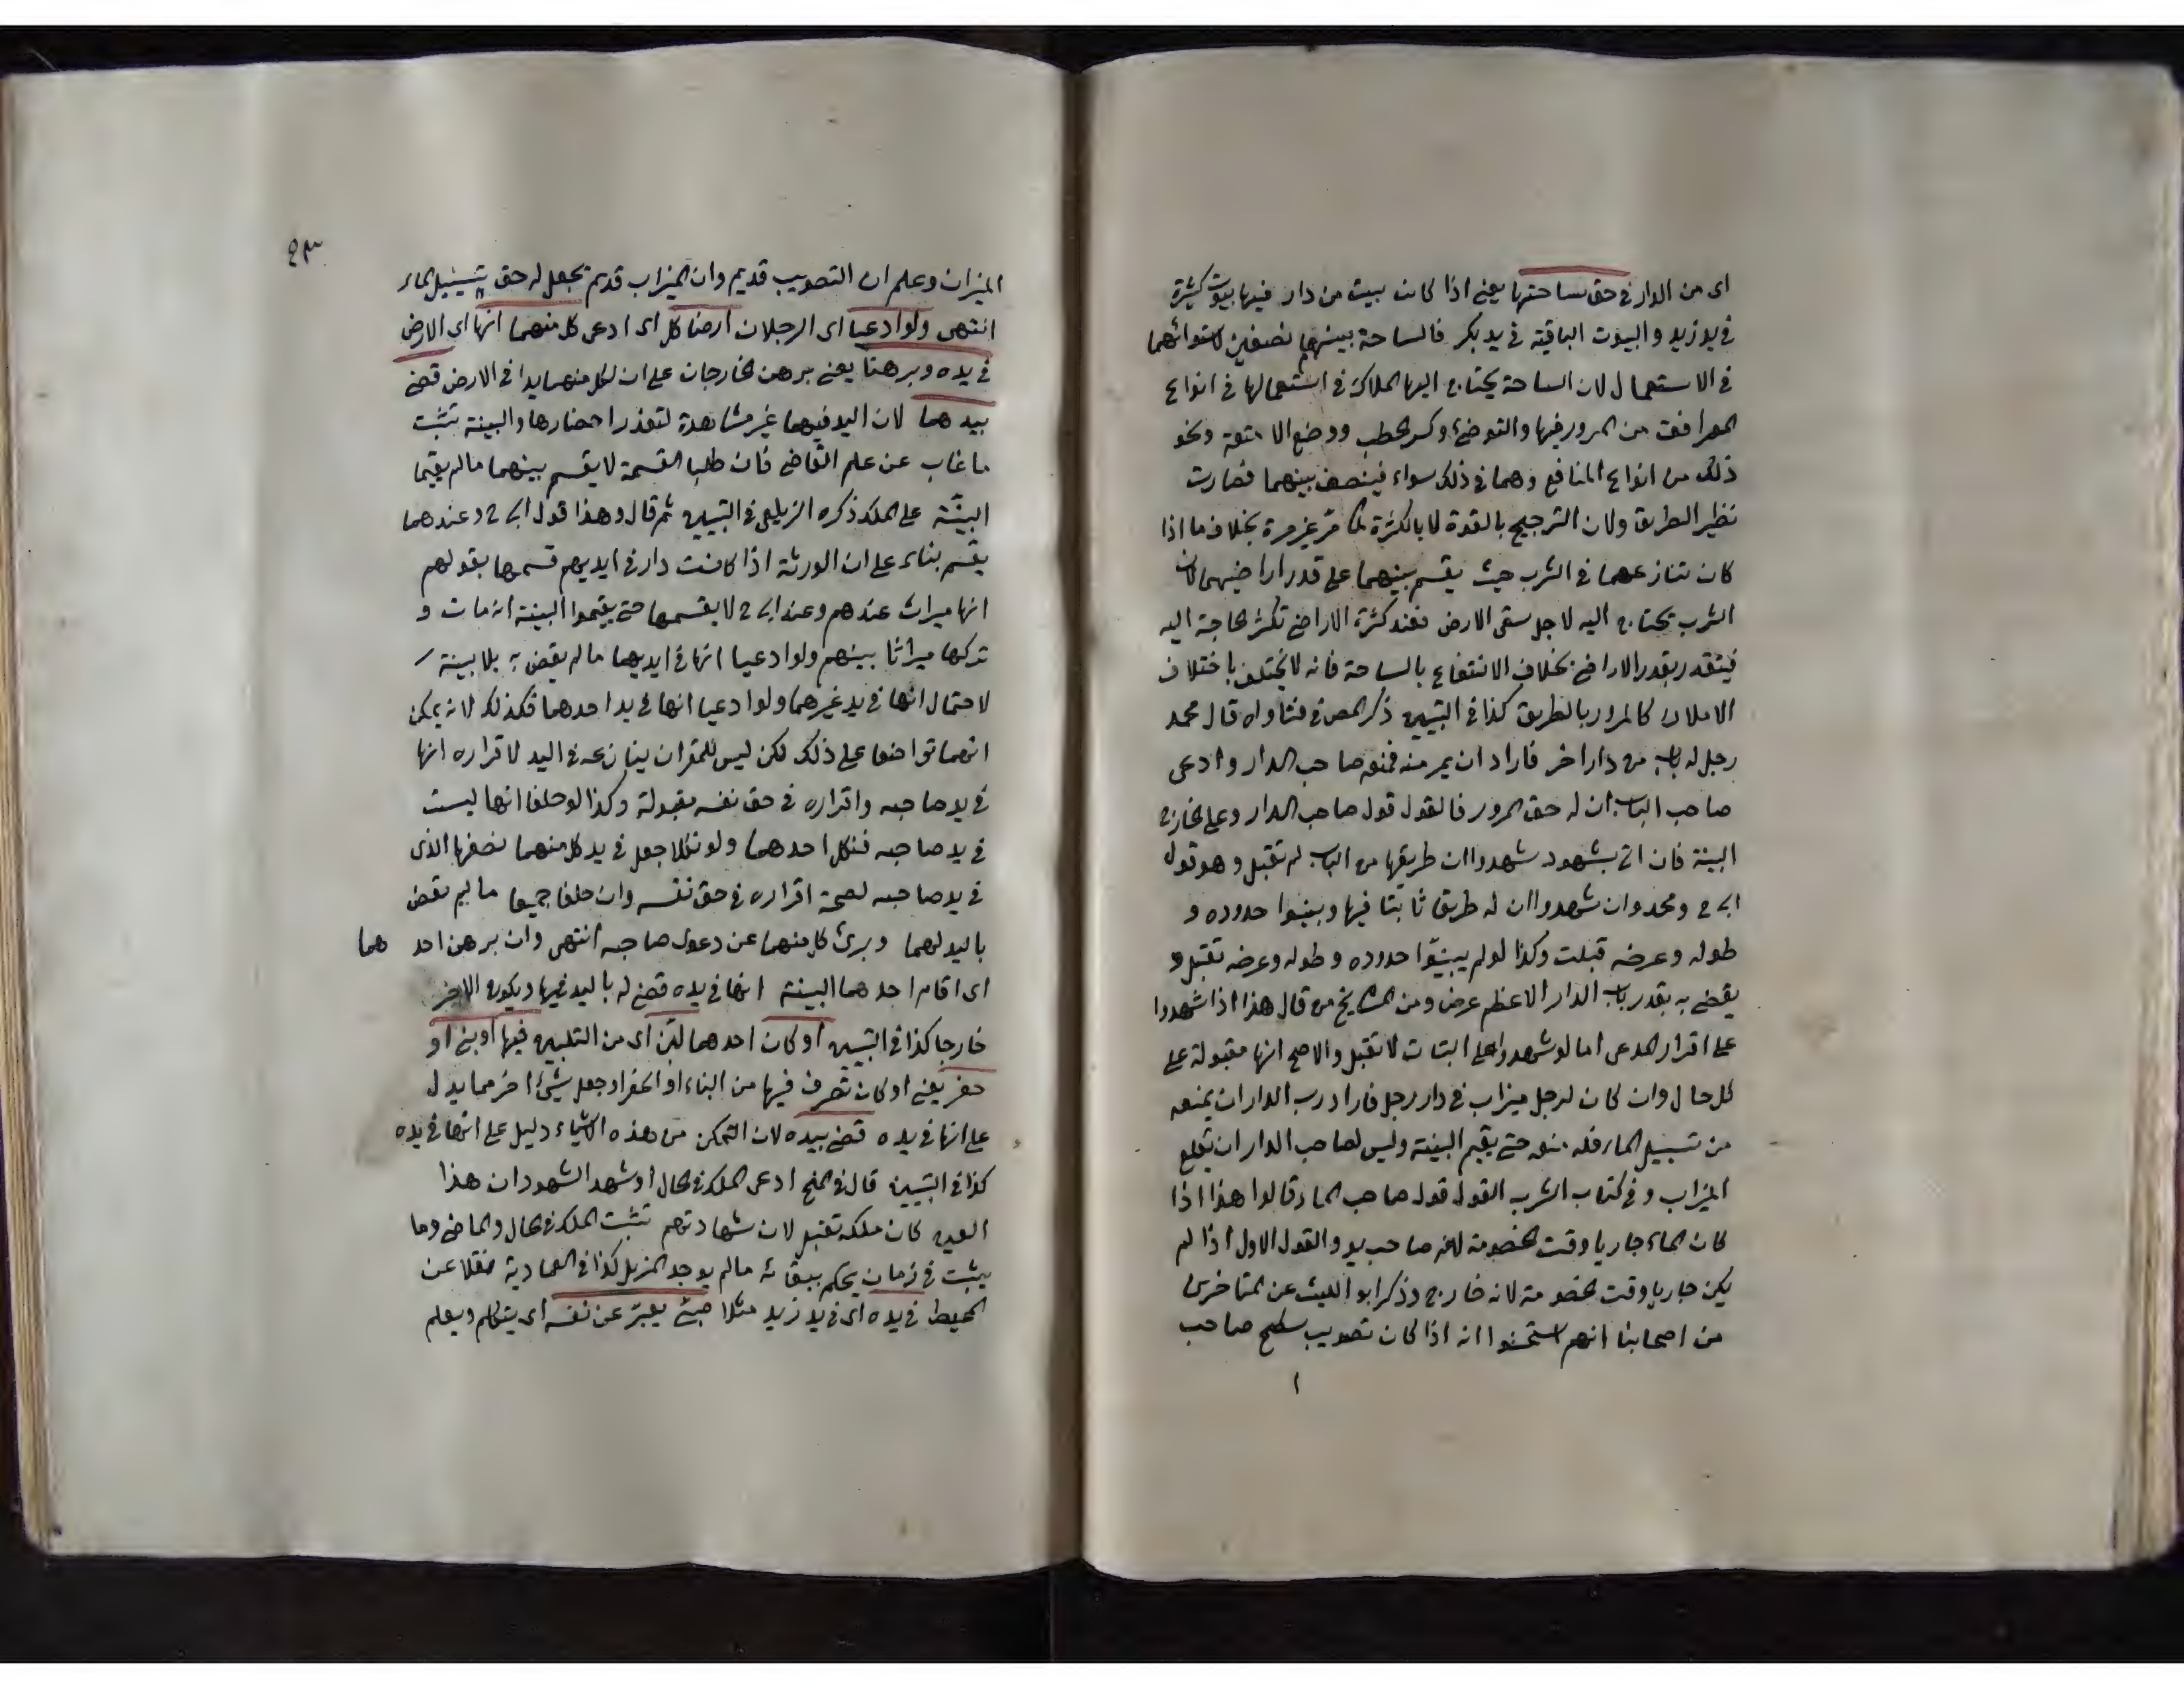 اى من الدار في حق ساحتها يعنى اذا كانت بيت من دار فيها بيوت كثيرة
في يد زيد والبيوت الباقية في يد بكر فالساحة بينهما نصفين لاستوائهما
في الاستعمال لان الساحة يحتاج اليها الملاك في استعمالها في انواع
المرافق من المرور فيها والتوضئ وكسر الحطب ووضع الامتعة ونحو
ذلك من انواع المنافع وهما في ذلك سواء فينصف بينهما فصارت
نظير الطريق ولان الترجيح بالقوة لا بالكثرة لما مر غير مرة بخلاف ما اذا
كان تنازعهما في الشرب حيث يقسم بينهما على قدر اراضيهما لان
الشرب يحتاج اليه لاجل سقى الارض فعند كثرة الاراضى تكثر الحاجة اليه
فيتقدر بقدر الاراضى بخلاف الانتفاع بالساحة فانه لا يختلف باختلاف
الاملاك كالمرور بالطريق كذا في التبيين ذكر المص في فتاواه قال محمد
رجل له باب من دار اخر فاراد ان يمر منه فمنعه صاحب الدار وادعى
صاحب الباب ان له حق المرور فالقول قول صاحب الدار وعلى الخارج
البينة فان اتى بشهود شهدوا ان طريقها من الباب لم تقبل وهو قول
ابى ح ومحمد وان شهدوا ان له طريقا ثابتا فيها وبينوا حدوده و
طوله وعرضه قبلت وكذا لو لم يبينوا حدوده وطوله وعرضه تقبل و
يقضى به بقدر باب الدار الاعظم عرض ومن المشايخ من قال هذا اذا شهدوا
على اقرار المدعى اما لو شهدوا على البتات لا تقبل والاصح انها مقبولة على
كل حال وان كان لرجل ميزاب في دار رجل فاراد رب الدار ان يمنعه
من تسييل الماء فله منعه حتى يقيم البينة وليس لصاحب الدار ان يقلع
الميزاب وفي كتاب الشرب القول قول صاحب الماء وقالوا هذا اذا
كان الماء جاريا وقت الخصومة لانه صاحب يد والقول الاول اذا لم
يكن جاريا وقت الخصومة لانه خارج وذكر ابو الليث عن المتاخرين
من اصحابنا انهم استحسنوا انه اذا كان تصويب سطح صاحب
ا
٤٣
الميزان وعلم ان التصويب قديم وان الميزاب قديم يجعل له حق تسييل الماء
انتهى ولو ادعيا اى الرجلان ارضا كل اى ادعى كل منهما انها اى الارض
في يده وبرهنا يعنى برهن الخارجان على ان لكل منهما يدا في الارض قضى
بيدهما لان اليد فيهما غير مشاهدة لتعذر احضارها والبينة تثبت
ما غاب عن علم القاضى فان طلبا القسمة لا يقسم بينهما ما لم يقيما
البينة على الملك ذكره الزيلعى في التبيين ثم قال وهذا قول ابى ح وعندهما
يقسم بناء على ان الورثة اذا كانت دار في ايديهم قسمها بقولهم
انها ميراث عندهم وعند ابى ح لا يقسمها حتى يقيموا البينة انه مات و
تركها ميراثا بينهم ولو ادعيا انها في ايديهما ما لم يقض به بلا بينة
لاحتمال انها في يد غيرهما ولو ادعيا انها في يد احدهما فكذلك لانه يمكن
انهما تواضعا على ذلك لكن ليس للمقر ان ينازعه في اليد لاقراره انها
في يد صاحبه واقراره في حق نفسه مقبولة وكذا لو حلفا انها ليست
في يد صاحبه فنكل احدهما ولو نكلا جعل في يد كل منهما نصفها الذى
في يد صاحبه لصحة اقراره في حق نفسه وان حلفا جميعا ما لم يقض
باليد لهما وبرئ كل منهما عن دعوى صاحبه انتهى وان برهن احد هما
اى اقام احدهما البينة انها في يده قضى له باليد فيها ويكون الاخر
خارجا كذا في التبيين او كان احدهما لبن اى من التلبين فيها او بنى او
حفر يعنى او كان تصرف فيها من البناء او الحفر او جعل شئ اخر مما يدل
على انها في يده قضى بيده لان التمكن من هذه الاشياء دليل على انها في يده
كذا في التبيين قال في المنح ادعى الملك في الحال او شهد الشهود ان هذا
العين كان ملكه تقبل لان شهادتهم تثبت الملك في الحال والماضى وما
يثبت في زمان يحكم ببقائه ما لم يوجد المزيل كذا في العمادية نقلا عن
المحيط في يده اى في يد زيد مثلا صبى يعبر عن نفسه اى يتكلم ويعلم